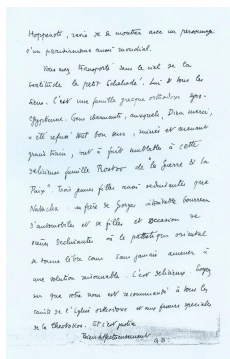 Hoppenot, ravis de se montrer avec un personnage
d'un parisianisme aussi mondial.
Vous avez transporté dans le ciel de la
béatitude le petit Schehadé. Lui & tous les
siens. C'est une famille grecque orthodoxe syro-
égyptienne. Gens charmants, auxquels, Dieu merci,
a été refusé tout bon sens, ruinés et menant
grand train, tout à fait semblables à cette
délicieuse famille Rostov de "la Guerre & la
Paix". Trois jeunes filles aussi séduisantes que
Natacha. un frère de Georges inimitable bourreau
d'automobiles et de filles et occasion de
scènes déchirantes où le pathétique oriental
se donne libre cours sans jamais amener à
une solution raisonnable. C'est délicieux. Soyez
sûr que votre nom est recommandé à tous les
saints de l'Église orthodoxe et aux faveurs spéciales
de la theotokos. Et c'est justice
Bien affectueusement
GB.